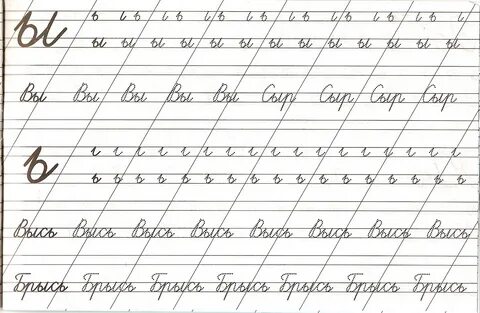 ы
ы ы ы ы ы ы ы ы ы ы ы ы ы
Вы Вы Вы Вы Вы Сыр Сыр Сыр Сыр
ь
ь ь ь ь ь ь ь ь ь ь ь ь ь ь ь ь ь
Высь Высь Высь Высь Высь Высь Высь Высь
Брысь Брысь Брысь Брысь Брысь Брысь Брысь